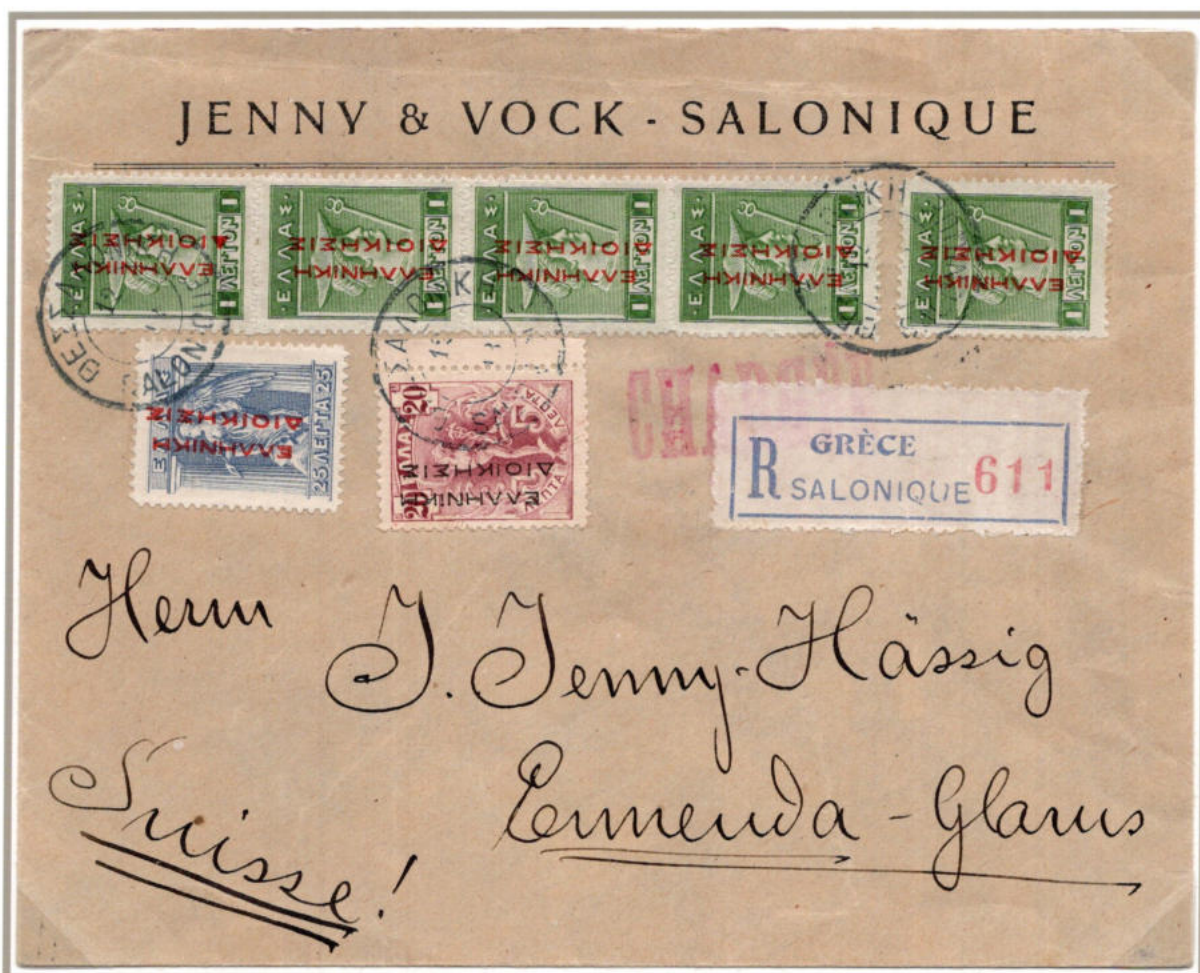 JENNY & VOCK - SALONIQUE
ΕΛΛΑΣ 1 ΛΕΠΤΟΝ 1 ΕΛΛΗΝΙΚΗ ΔΙΟΙΚΗΣΙΣ
ΕΛΛΑΣ 1 ΛΕΠΤΟΝ 1 ΕΛΛΗΝΙΚΗ ΔΙΟΙΚΗΣΙΣ
ΕΛΛΑΣ 1 ΛΕΠΤΟΝ 1 ΕΛΛΗΝΙΚΗ ΔΙΟΙΚΗΣΙΣ
ΕΛΛΑΣ 1 ΛΕΠΤΟΝ 1 ΕΛΛΗΝΙΚΗ ΔΙΟΙΚΗΣΙΣ
ΕΛΛΑΣ 1 ΛΕΠΤΟΝ 1 ΕΛΛΗΝΙΚΗ ΔΙΟΙΚΗΣΙΣ
SALONIQUE
25 ΛΕΠΤΑ 25 ΕΛΛΗΝΙΚΗ ΔΙΟΙΚΗΣΙΣ
20 ΕΛΛΑΣ 20 ΛΕΠΤΑ ΛΕΠΤΑ ΕΛΛΗΝΙΚΗ ΔΙΟΙΚΗΣΙΣ
R GRÈCE
SALONIQUE 611
Herrn
J. Jenny-Hässig
Ennenda - Glarus
Suisse!